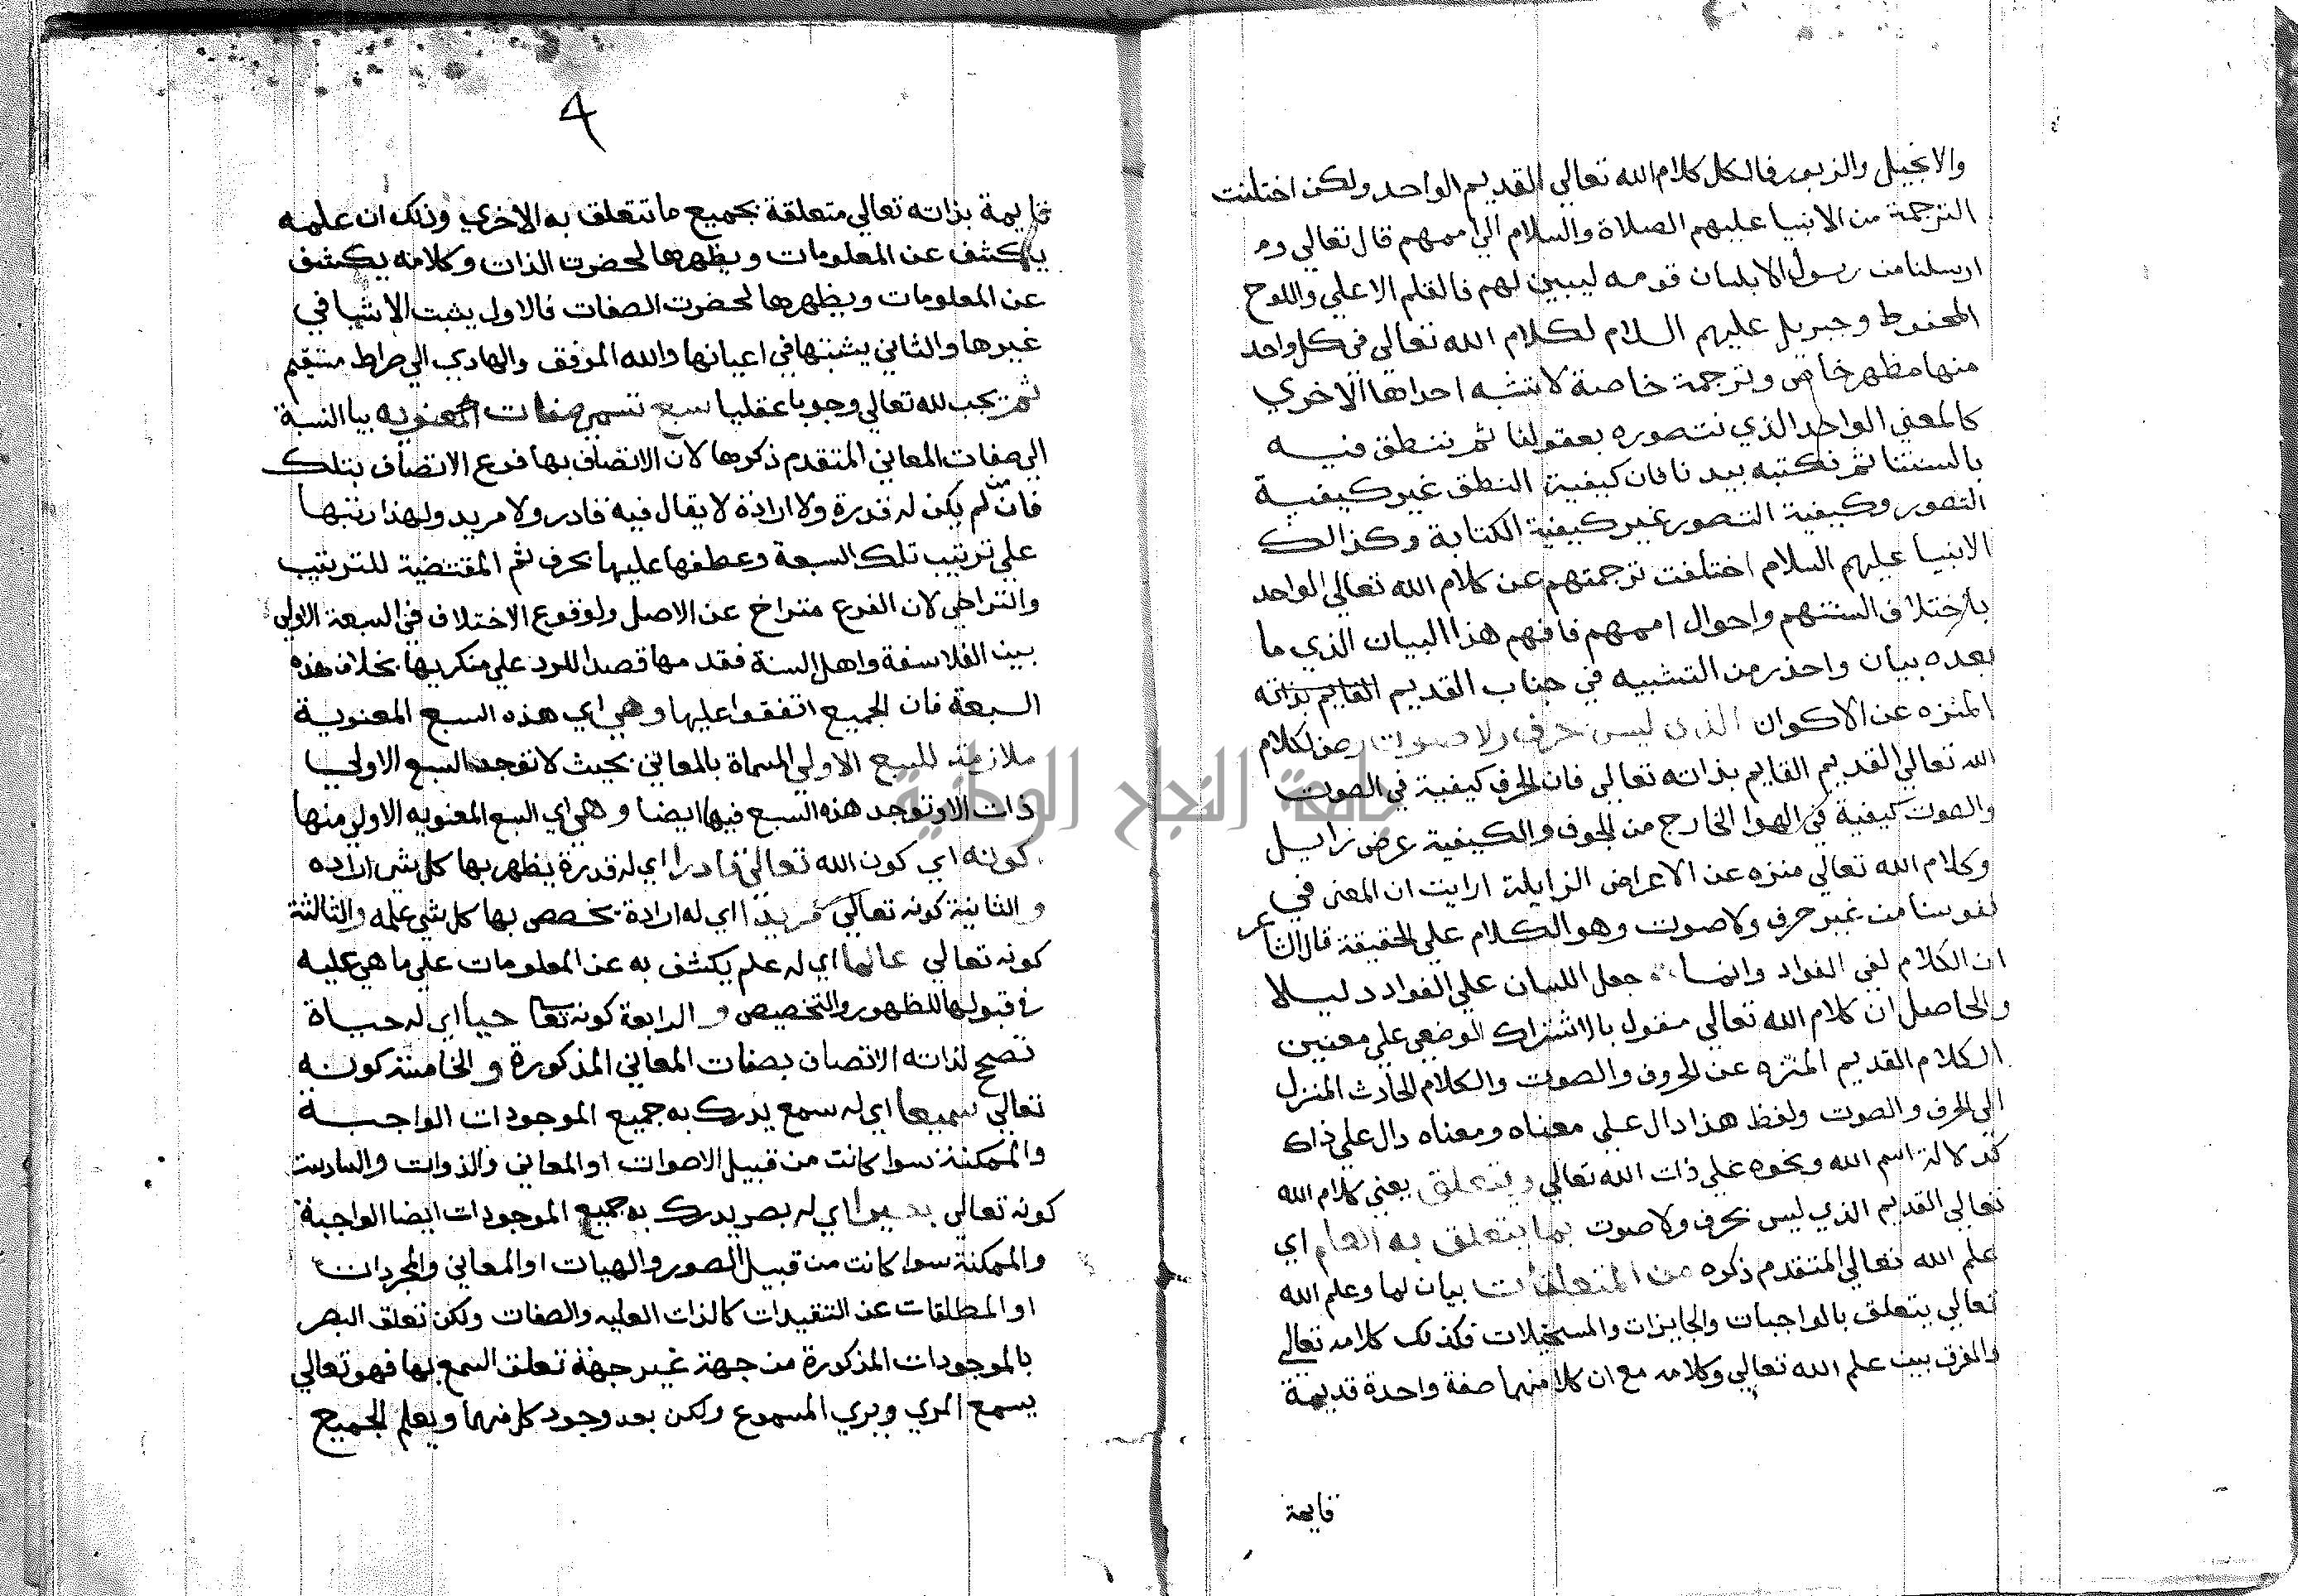 والانجيل والزبور فالكل كلام الله تعالي القديم الواحد ولكن اختلفت
الترجمة من الانبيا عليهم الصلاة والسلام الي اممهم قال تعالي وم
ارسلنا من رسول الا بلسان قومه ليبين لهم فالقلم الاعلي واللوح
المحفوظ وجبريل عليهم السلام لكلام الله تعالي في كل واحد
منها مظهر خاص وترجمة خاصة لا تشبه احداها الاخري
كالمعني الواحد الذي نتصوره بعقولنا ثم ننطق فيه
بالسنتنا ثم نكتبه بيدنا فان كيفية النطق غير كيفية
التصور وكيفية التصور غير كيفية الكتابة وكذالك
الانبيا عليهم السلام اختلفت ترجمتهم عن كلام الله تعالي الواحد
باختلاف السنتهم واحوال اممهم فافهم هذا البيان الذي ما
بعده بيان واحذر من التشبيه في جناب القديم القايم بذاته
المنزه عن الاكوان الذي ليس بحرف ولا صوت وصف لكلام
الله تعالي القديم القايم بذاته تعالي فان الحرف كيفية في الصوت
والصوت كيفية في الهوا الخارج من الجوف والكيفية عرض زايل
وكلام الله تعالي منزه عن الاعراض الزايلة ارايت ان المعني في
نفوسنا من غير حرف ولا صوت وهو الكلام علي الحقيقة قال الشاعر
ان الكلام لفي الفواد وانما جعل اللسان علي الفواد دليلا
والحاصل ان كلام الله تعالي مقول بالاشتراك الوضعي علي معنين
الكلام القديم المنزه عن الحروف والصوت والكلام الحادث المنزل
الي الحرف والصوت ولفظ هذا دال علي معناه ومعناه دال علي ذاك
كدلالة اسم الله ونحوه علي ذات الله تعالي ويتعلق يعني كلام الله
تعالي القديم الذي ليس بحرف ولا صوت بما يتعلق به العلم اي
علم الله تعالي المتقدم ذكره من المتعلقات بيان لما وعلم الله
تعالي يتعلق بالواجبات والجايزات والمستحيلات فكذلك كلامه تعالي
والفرق بين علم الله تعالي وكلامه مع ان كلا منهما صفة واحدة قديمة
قايمة
4
قايمة بذاته تعالي متعلقة بجميع ما تتعلق به الاخري وذلك ان علمه
يكشف عن المعلومات ويظهرها لحضرت الذات وكلامه يكشف
عن المعلومات ويظهرها لحضرت الصفات فالاول يثبت الاشيا في
غيرها والثاني يثبتها في اعيانها والله الموفق والهادي الي صراط مستقيم
ثم يجب لله تعالي وجوبا عقليا سبع تسمي صفات المعنويه بيا النسبة
الي صفات المعاني المتقدم ذكرها لان الاتصاف بها فرع الاتصاف بتلك
فان من لم يكن له قدرة ولا ارادة لا يقال فيه قادر ولا مريد ولهذا رتبها
علي ترتيب تلك السبعة وعطفها عليها بحرف ثم المقتضية للترتيب
والتراخي لان الفرع متراخ عن الاصل ولوقوع الاختلاف في السبعة الاولي
بين الفلاسفة واهل السنة فقدمها قصدا للرد علي منكريها بخلاف هذه
السبعة فان الجميع اتفقوا عليها وهي اي هذه السبع المعنوية
ملازمة للسبع الاولي المسماة بالمعاني بحيث لا توجد السبع الاولي
ذات الا وتوجد هذه السبع فيها ايضا وهي اي السبع المعنويه الاولي منها
كونه اي كون الله تعالي قادرا اي له قدرة يظهر بها كل شي اراده
والثانية كونه تعالي مريدا اي له ارادة يخصص بها كل شي علمه والثالثة
كونه تعالي عالما اي له علم يكشف به عن المعلومات علي ما هي عليه
في قبولها للظهور والتخصيص و الرابعة كونه تعا حيا اي له حياة
تصحح لذاته الاتصاف بصفات المعاني المذكورة و الخامسة كونه
تعالي سميعا اي له سمع يدرك به جميع الموجودات الواجبة
والممكنة سوا كانت من قبيل الاصوات او المعاني والذوات والسادسة
كونه تعالي بصيرا اي له بصر يدرك به جميع الموجودات ايضا الواجبة
والممكنة سوا كانت من قبيل الصور والهيات او المعاني والمجردات
او المطلقات عن التقيدات كالذات العليه والصفات ولكن تعلق البصر
بالموجودات المذكورة من جهة غير جهة تعلق السمع بها فهو تعالي
يسمع المري ويري المسموع ولكن بعد وجود كل منهما ويعلم الجميع
جامعة النجاح الوطنية